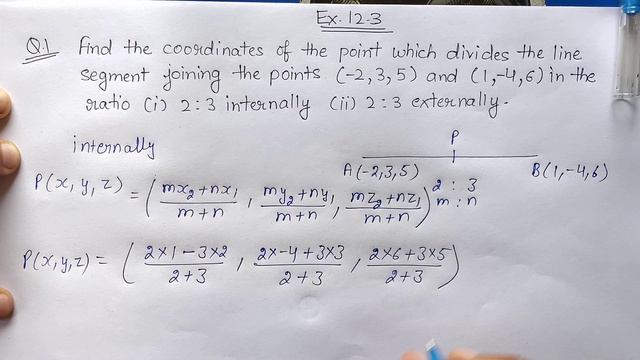 Ex. 12.3
Q.1 Find the coordinates of the point which divides the line
segment joining the points (-2,3,5) and (1,-4,6) in the
ratio (i) 2:3 internally (ii) 2:3 externally.
internally
P
A(-2,3,5) B(1,-4,6)
2 : 3
m : n
P(x,y,z) = (mx₂+nx₁/m+n, my₂+ny₁/m+n, mz₂+nz₁/m+n)
P(x,y,z) = (2×1-3×2/2+3, 2×-4+3×3/2+3, 2×6+3×5/2+3)